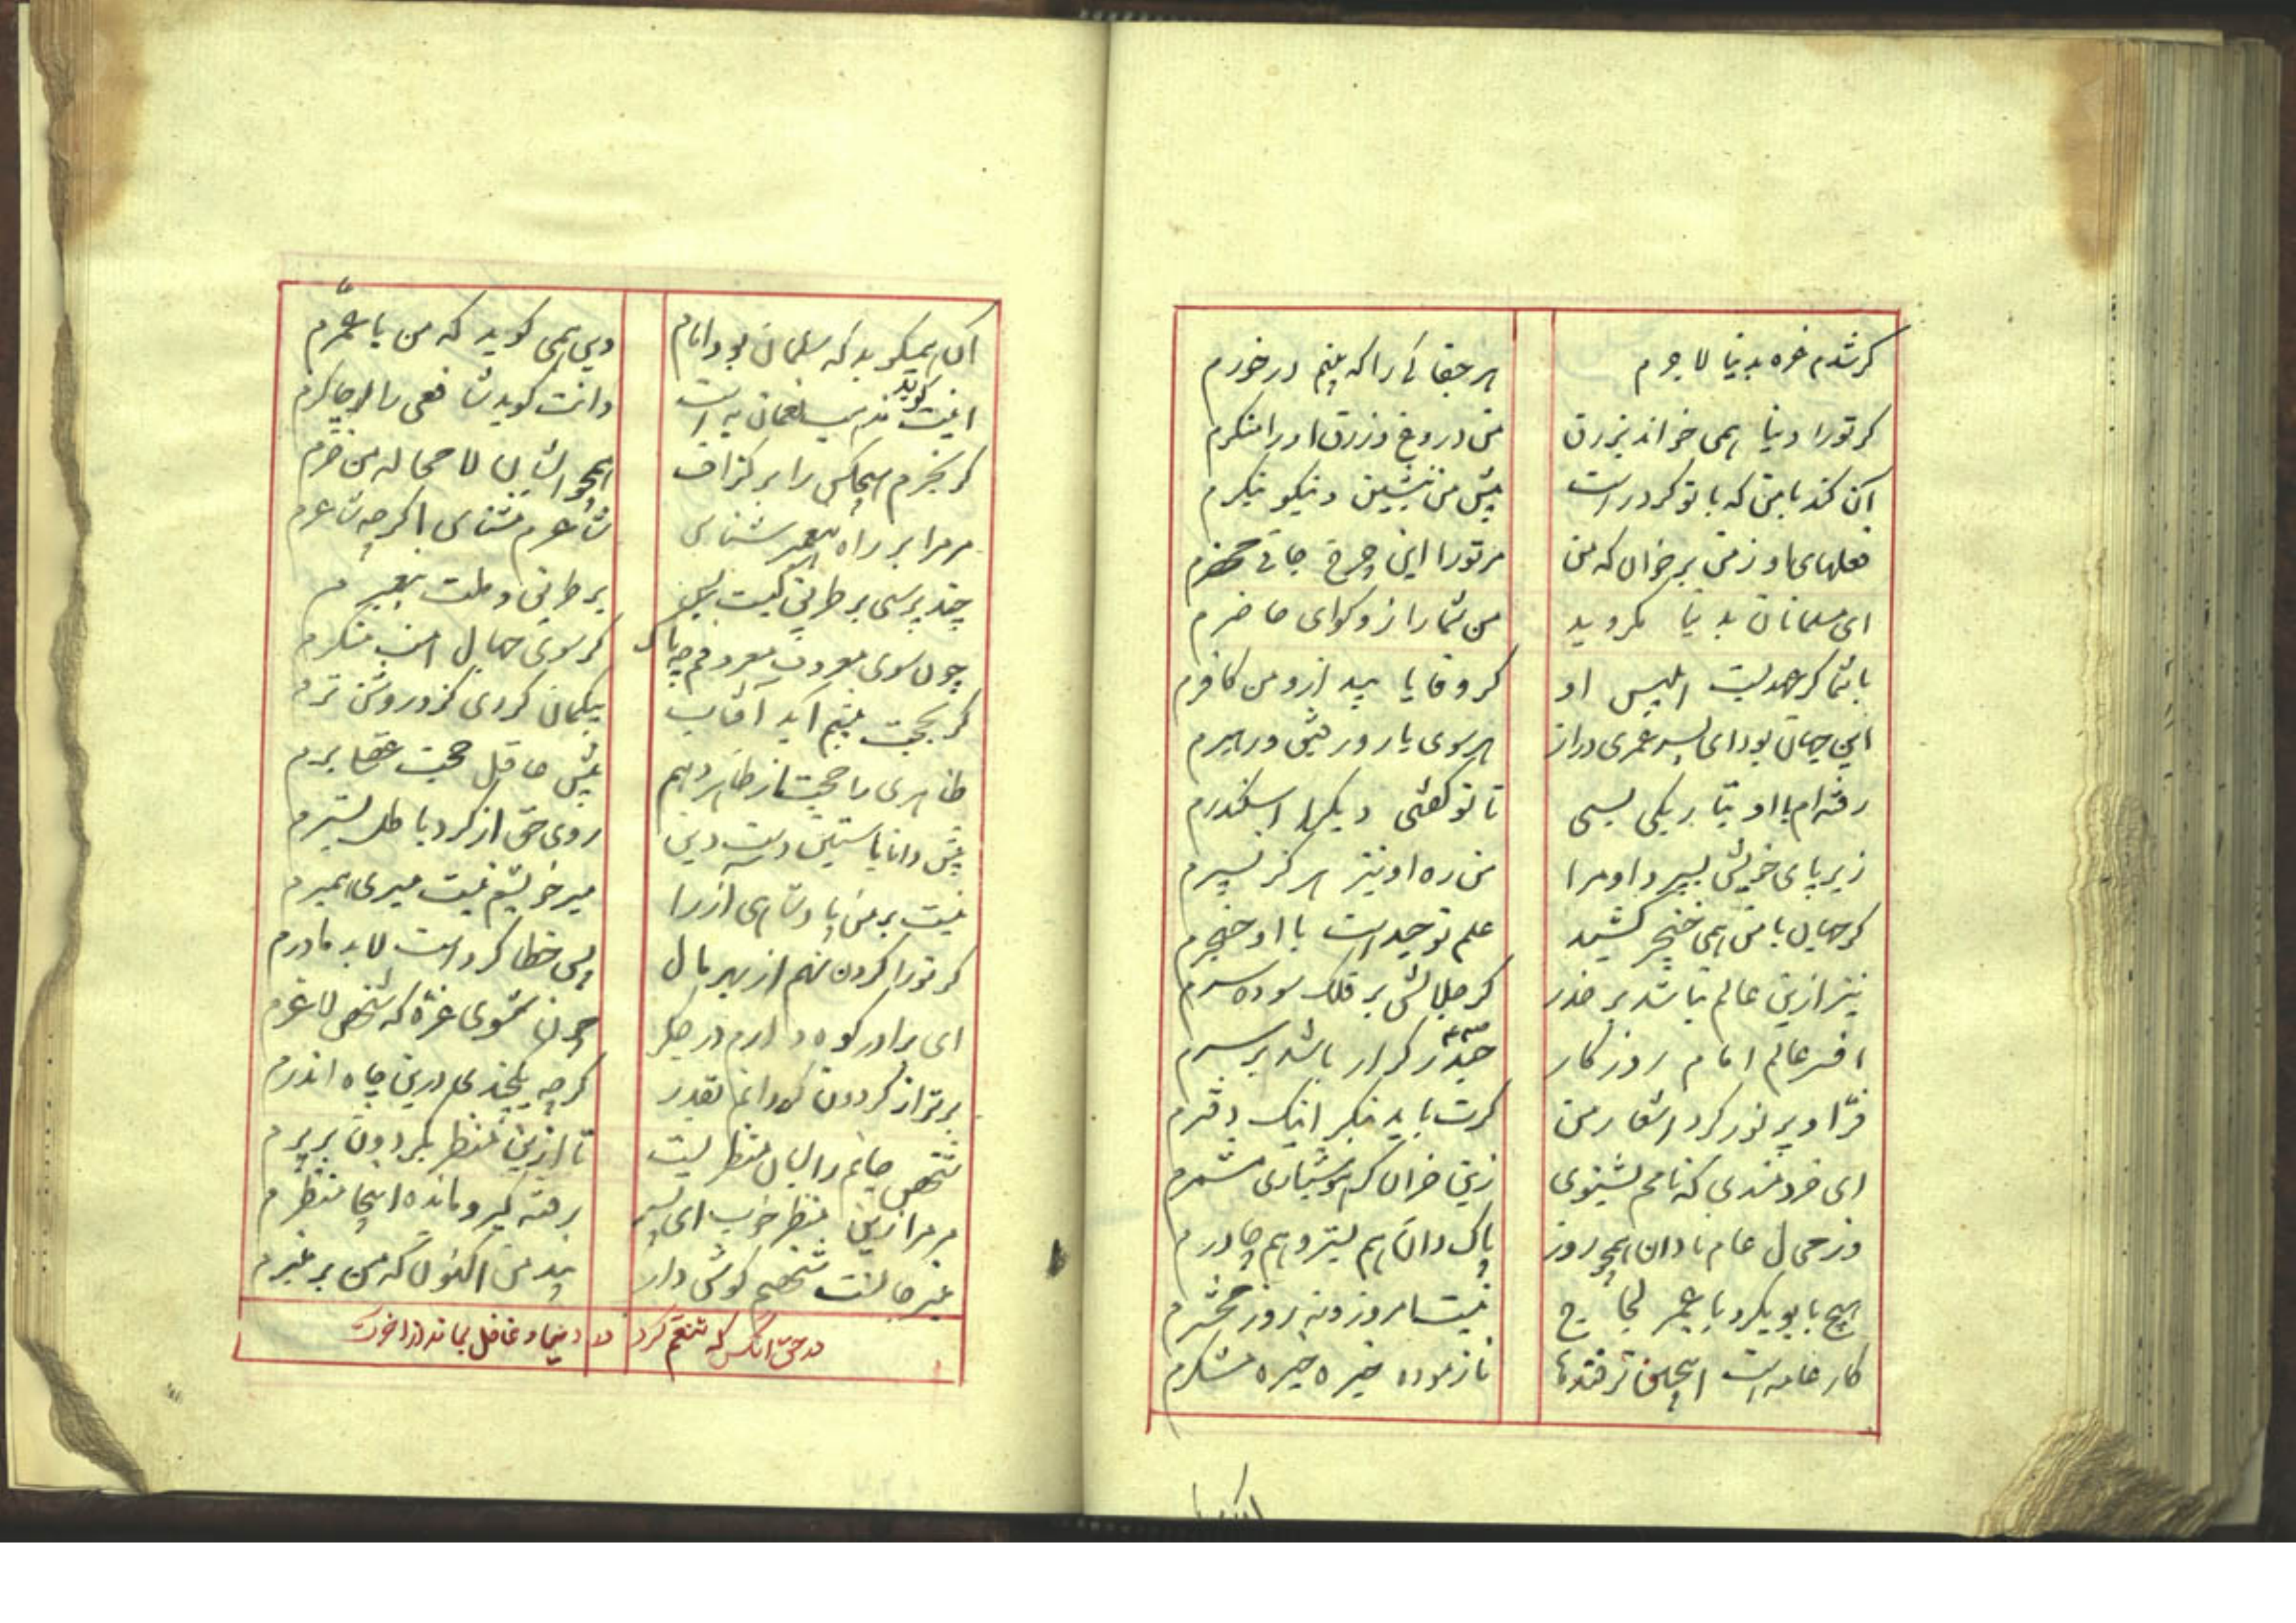 کر شدم غره بدنیا لاجرم هر جفائی را که بینم در خورم
کر تورا دنیا همی خواند بزرق من دروغ و زرق اورا منکرم
آن کند با من که با تو کرد راست پیش من بنشین و نیکو بنکرم
فعلهای او ز من برخوان که من مر تورا این چرخ جافی محضرم
ای مسلمانان بدنیا مکروید من شما را زو کوای حاضرم
با شما کر عهد بست ابلیس او کر وفا یابید ازو من کافرم
این جهان بود ای پسر عمری دراز هر سوی یار و رفیق و رهبرم
رفته ام با او بتاریکی بسی تا تو کفتی دیکر اسکندرم
زیر پای خویش بسپرد او مرا من ره او نیز هرکز نسپرم
کر جهان با من همی خنجر کشید علم توحید است با او خنجرم
نیز ازین عالم نباشد بر حذر کر جلالش بر فلک سوده سرم
افسر عالم امام روزکار حیدر کرار باشد بر سرم
فر او پر نور کرد اشعار من کرت باید بنکر اینک دفترم
ای خردمندی که نامم بشنوی زین خران کر هوشیاری مشمرم
وز محال عام نادان همچو روز پاک دان هم بستر و هم چادرم
هیچ با بوبکر و با عمر لجاج نیست امروز و نه روز محشرم
کار عامه است اینچنین ترفندها نازموده خیره خیره مشکرم
آن همیکوید که سلمان بود امام وین همی کوید که من با عمرم
اینت کوید مذهب نعمان به است وانت کوید شافعی را چاکرم
کر نخرم هیچکس را بر کزاف همچو ایشان لامحاله من خرم
مر مرا بر راه پیغمبر شناس شاعرم مشناس اکرچه شاعرم
چند پرسی بر طریق کیست پس بر طریق و ملت پیغمبرم
چون سوی معروف معروفم چه باک کر سوی جهال امت منکرم
کر بحجت پیشم آید آفتاب بیکمان کردی کزو روشن ترم
ظاهری را حجت از ظاهر دهم پیش عاقل حجت عقلی برم
پیش دانا بآستین دست دین روی حق از کرد باطل بسترم
نیست بر من پادشاهی آز را میر خویشم نیست میری همبرم
کر تورا کردن نهم از بهر مال پس خطا کرد است لابد مادرم
ای برادر کوه دارم در جکر چون شوی غره که شخص لاغرم
برتر از کردون کردانم بقدر کرچه یکچندی درین چاه اندرم
شخص جانم را بسان منظریست تا ازین منظر بکردون بر پرم
مر مرا زین منظر خوب ای پسر رفته کیر و مانده اینجا منظرم
غیر جانست شخصم کوش دار پند من اکنون که من بر غبرم
در حق آنکس که تنعم کرد در دنیا و غافل بماند از آخرت